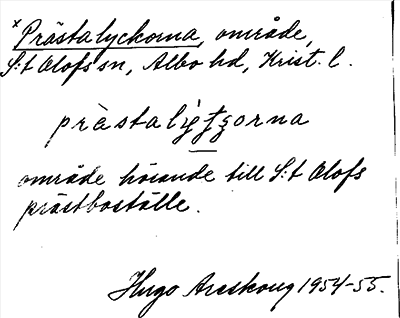 *Prästalyckorna, område,
S:t Olofs sn, Albo hd, Krist. l.
område hörande till S:t Olofs
prästboställe.
Hugo Areskoug 1954-55.